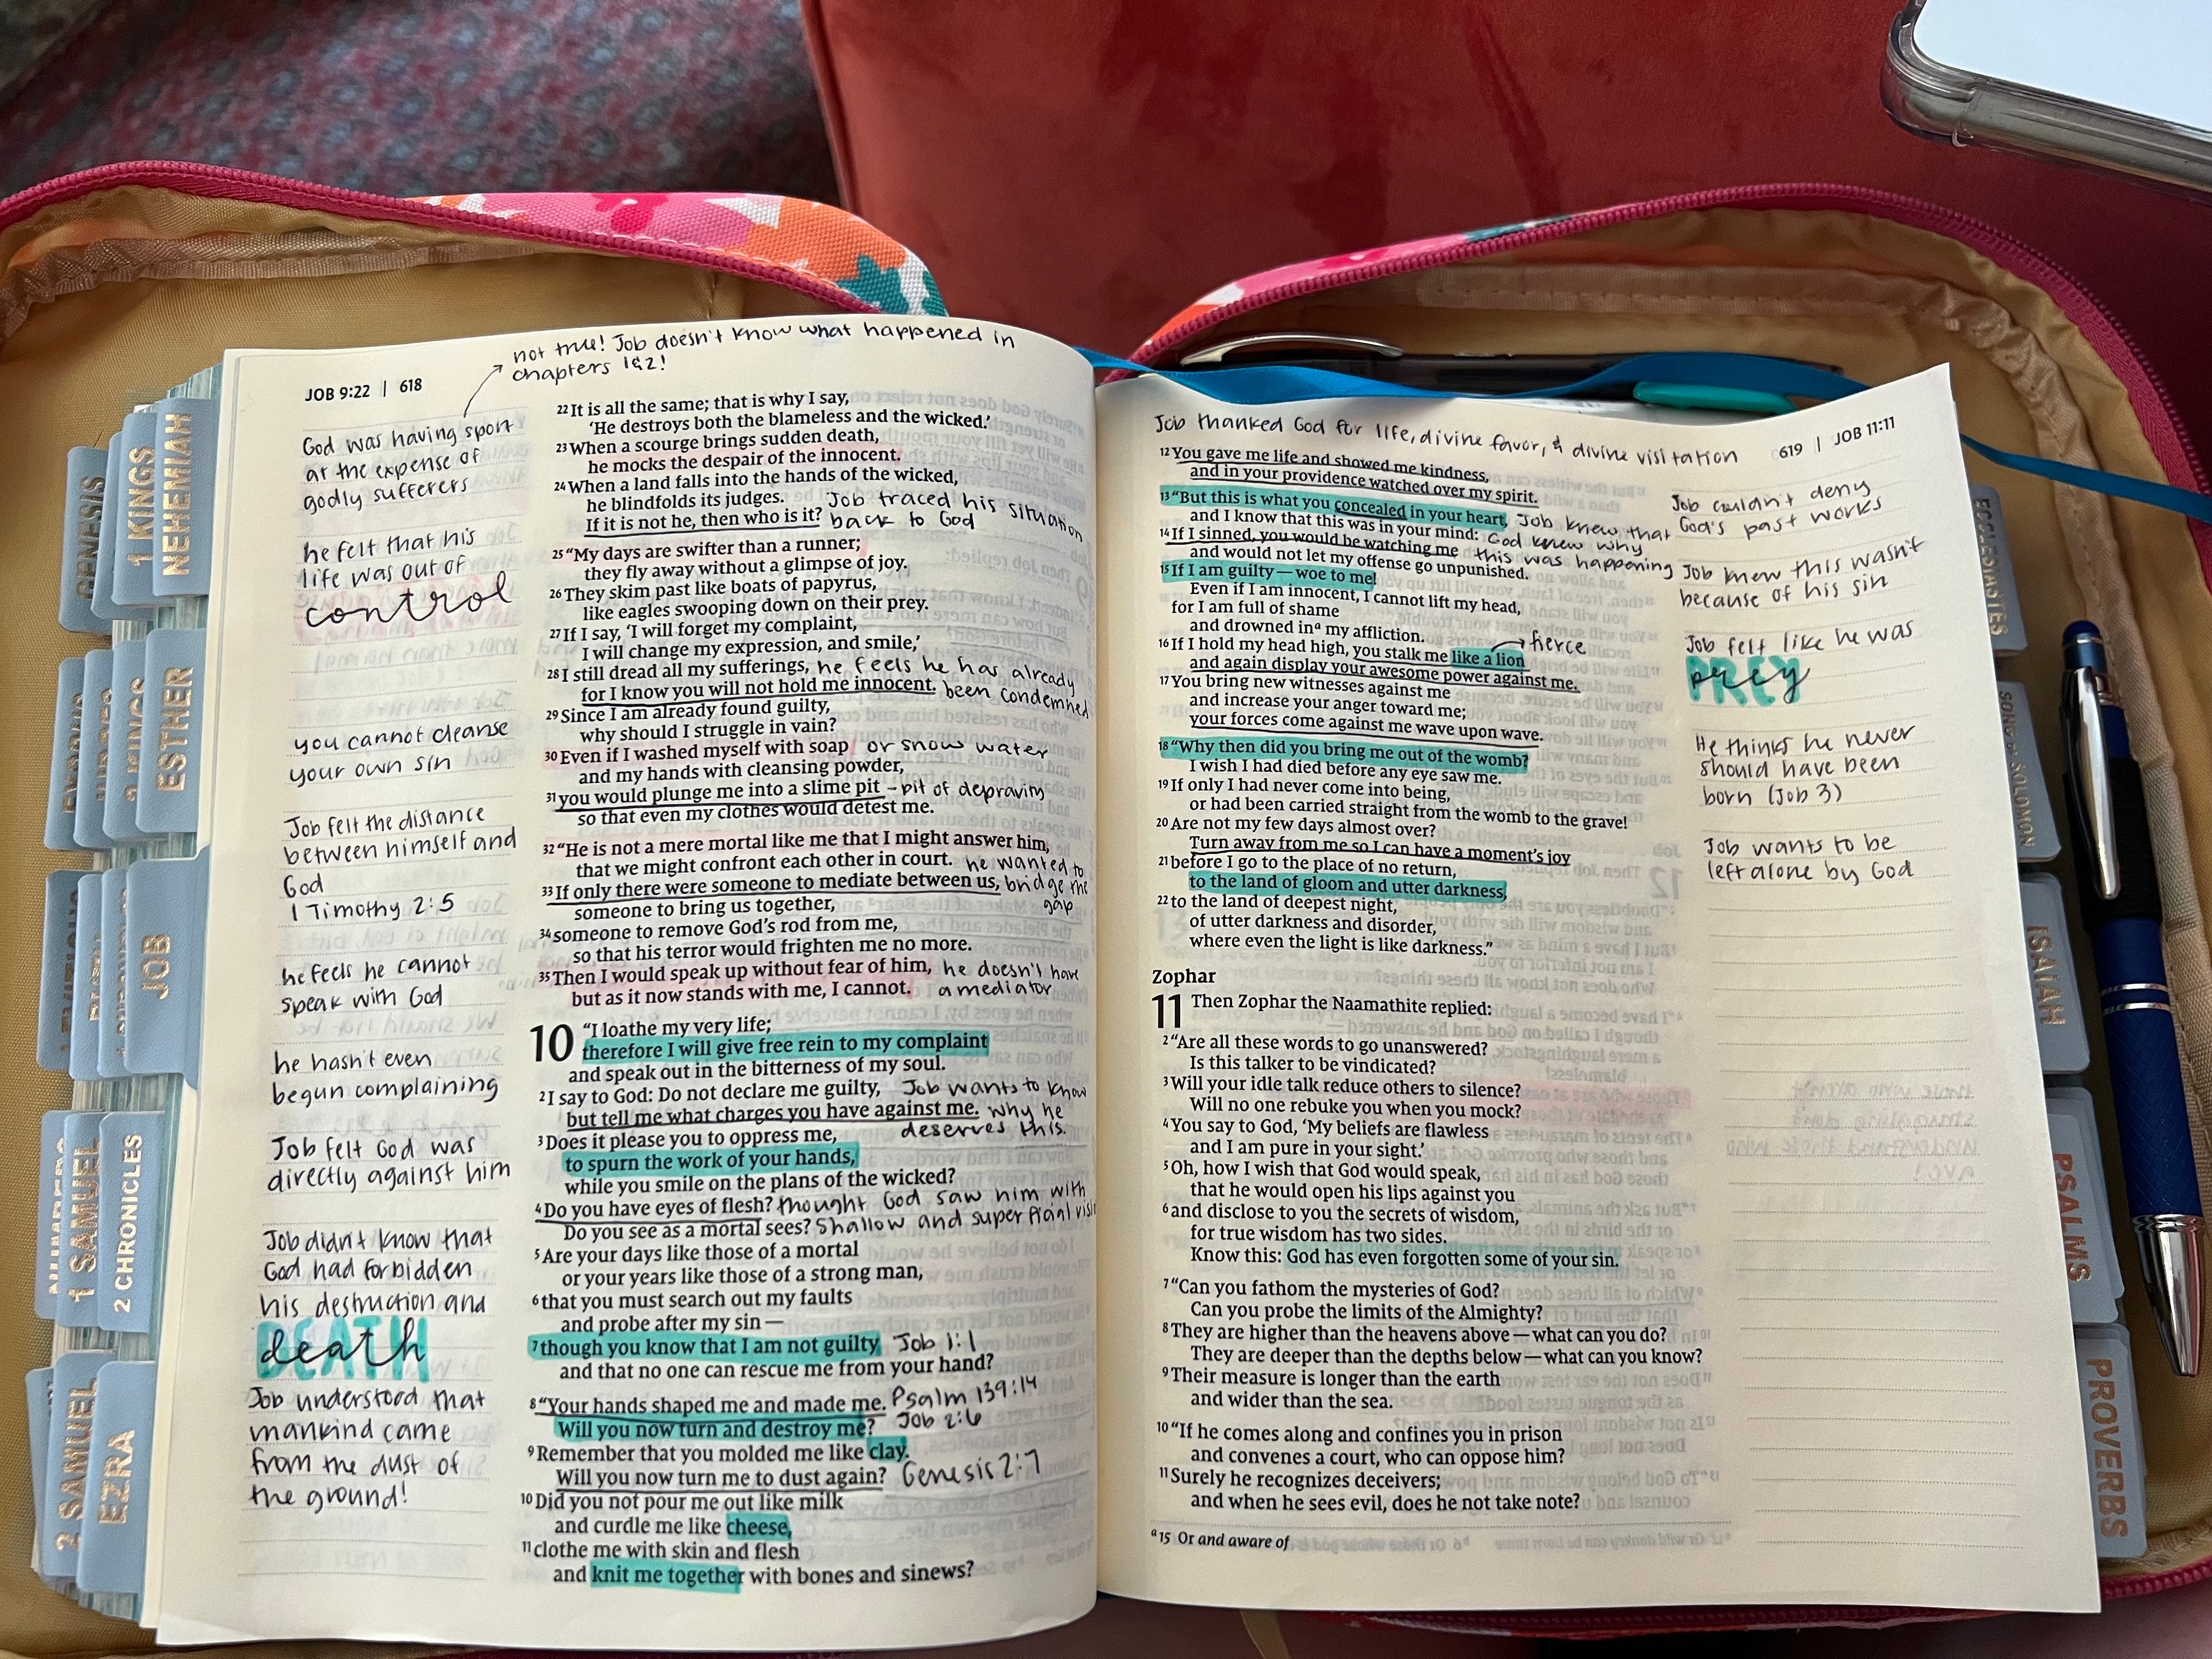 not true! Job doesn't know what happened in
chapters 1&2!
JOB 9:22 | 618
God was having sport
at the expense of
godly sufferers
he felt that his
life was out of
control
you cannot cleanse
your own sin
Job felt the distance
between himself and
God
1 Timothy 2:5
he feels he cannot
speak with God
he hasn't even
begun complaining
Job felt God was
directly against him
Job didn't know that
God had forbidden
his destruction and
DEATH
death
Job understood that
mankind came
from the dust of
the ground!
22 It is all the same; that is why I say,
'He destroys both the blameless and the wicked.'
23 When a scourge brings sudden death,
he mocks the despair of the innocent.
24 When a land falls into the hands of the wicked,
he blindfolds its judges. Job traced his situation
If it is not he, then who is it? back to God
25 "My days are swifter than a runner;
they fly away without a glimpse of joy.
26 They skim past like boats of papyrus,
like eagles swooping down on their prey.
27 If I say, 'I will forget my complaint,
I will change my expression, and smile,'
28 I still dread all my sufferings, he feels he has already
for I know you will not hold me innocent. been condemned
29 Since I am already found guilty,
why should I struggle in vain?
30 Even if I washed myself with soap or snow water
and my hands with cleansing powder,
31 you would plunge me into a slime pit - pit of depravity
so that even my clothes would detest me.
32 "He is not a mere mortal like me that I might answer him,
that we might confront each other in court. he wanted to
33 If only there were someone to mediate between us, bridge the
someone to bring us together, gap
34 someone to remove God's rod from me,
so that his terror would frighten me no more.
35 Then I would speak up without fear of him, he doesn't have
but as it now stands with me, I cannot. a mediator
10 "I loathe my very life;
therefore I will give free rein to my complaint
and speak out in the bitterness of my soul.
2 I say to God: Do not declare me guilty, Job wants to know
but tell me what charges you have against me. why he
3 Does it please you to oppress me, deserves this.
to spurn the work of your hands,
while you smile on the plans of the wicked?
4 Do you have eyes of flesh? thought God saw him with
Do you see as a mortal sees? shallow and superficial
5 Are your days like those of a mortal
or your years like those of a strong man,
6 that you must search out my faults
and probe after my sin—
7 though you know that I am not guilty Job 1:1
and that no one can rescue me from your hand?
8 "Your hands shaped me and made me. Psalm 139:14
Will you now turn and destroy me? Job 2:6
9 Remember that you molded me like clay.
Will you now turn me to dust again? Genesis 2:7
10 Did you not pour me out like milk
and curdle me like cheese,
11 clothe me with skin and flesh
and knit me together with bones and sinews?
Job thanked God for life, divine favor, & divine visitation
619 | JOB 11:11
12 You gave me life and showed me kindness,
and in your providence watched over my spirit.
13 "But this is what you concealed in your heart, Job knew that
and I know that this was in your mind: God knew why
14 If I sinned, you would be watching me this was happening
and would not let my offense go unpunished.
15 If I am guilty—woe to me!
Even if I am innocent, I cannot lift my head,
for I am full of shame
and drowned in a my affliction.
16 If I hold my head high, you stalk me like a lion → fierce
and again display your awesome power against me.
17 You bring new witnesses against me
and increase your anger toward me;
your forces come against me wave upon wave.
18 "Why then did you bring me out of the womb?
I wish I had died before any eye saw me.
19 If only I had never come into being,
or had been carried straight from the womb to the grave!
20 Are not my few days almost over?
Turn away from me so I can have a moment's joy
21 before I go to the place of no return,
to the land of gloom and utter darkness,
22 to the land of deepest night,
of utter darkness and disorder,
where even the light is like darkness."
Zophar
11 Then Zophar the Naamathite replied:
2 "Are all these words to go unanswered?
Is this talker to be vindicated?
3 Will your idle talk reduce others to silence?
Will no one rebuke you when you mock?
4 You say to God, 'My beliefs are flawless
and I am pure in your sight.'
5 Oh, how I wish that God would speak,
that he would open his lips against you
6 and disclose to you the secrets of wisdom,
for true wisdom has two sides.
Know this: God has even forgotten some of your sin.
7 "Can you fathom the mysteries of God?
Can you probe the limits of the Almighty?
8 They are higher than the heavens above—what can you do?
They are deeper than the depths below—what can you know?
9 Their measure is longer than the earth
and wider than the sea.
10 "If he comes along and confines you in prison
and convenes a court, who can oppose him?
11 Surely he recognizes deceivers;
and when he sees evil, does he not take note?
a 15 Or and aware of
Job couldn't deny
God's past works
Job knew this wasn't
because of his sin
Job felt like he was
PREY
prey
He thinks he never
should have been
born (Job 3)
Job wants to be
left alone by God
GENESIS
1 KINGS
NEHEMIAH
2 KINGS
ESTHER
JOB
1 SAMUEL
2 CHRONICLES
2 SAMUEL
EZRA
ECCLESIASTES
SONG OF SOLOMON
ISAIAH
PSALMS
PROVERBS